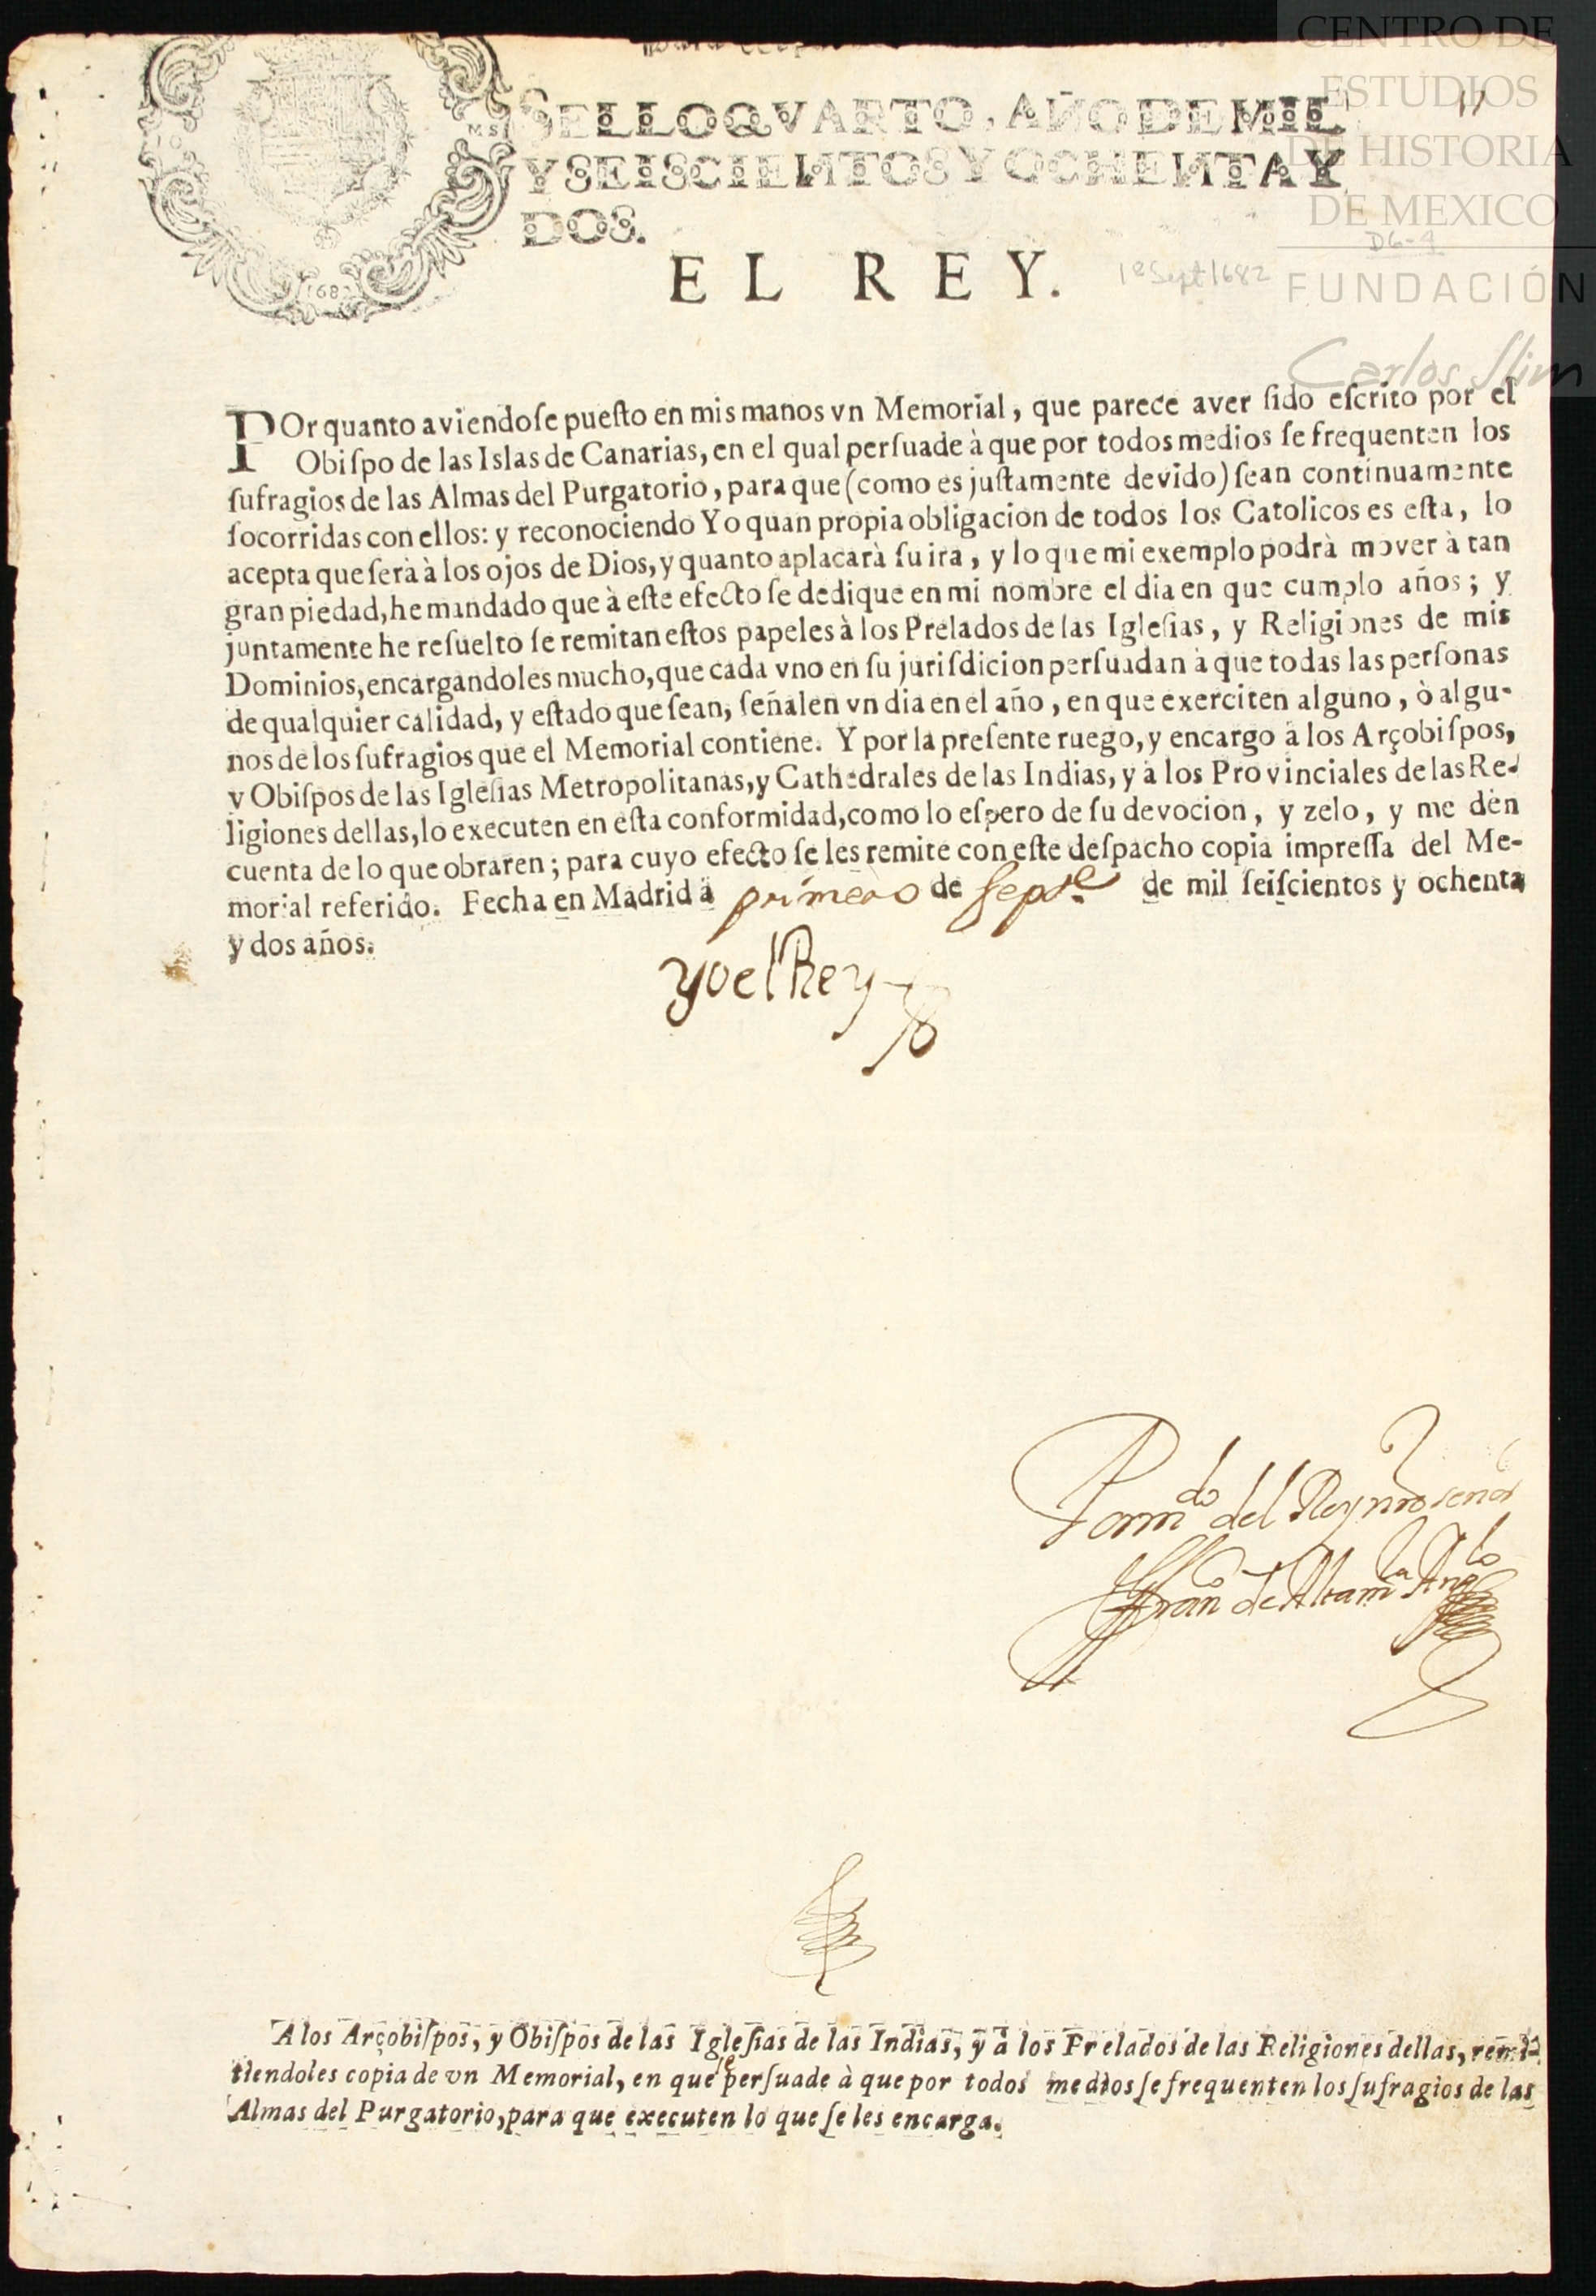 CENTRO DE
ESTUDIOS
DE HISTORIA
DE MEXICO
FUNDACIÓN
Carlos Slim
11
D6-4
1º Sept 1682
M S
SELLO QVARTO, AÑO DE MIL
Y SEISCIENTOS Y OCHENTA Y
DOS.
168
EL REY.
POr quanto aviendoſe pueſto en mis manos vn Memorial, que parece aver ſido eſcrito por el
Obiſpo de las Islas de Canarias, en el qual perſuade à que por todos medios ſe frequenten los
ſufragios de las Almas del Purgatorio, para que (como es juſtamente devido) ſean continuamente
ſocorridas con ellos: y reconociendo Yo quan propia obligacion de todos los Catolicos es eſta, lo
acepta que ſerà à los ojos de Dios, y quanto aplacarà ſu ira, y lo que mi exemplo podrà mover à tan
gran piedad, he mandado que à eſte efecto ſe dedique en mi nombre el dia en que cumplo años; y
juntamente he reſuelto ſe remitan eſtos papeles à los Prelados de las Igleſias, y Religiones de mis
Dominios, encargandoles mucho, que cada vno en ſu juriſdicion perſuadan à que todas las perſonas
de qualquier calidad, y eſtado que ſean, ſeñalen vn dia en el año, en que exerciten alguno, ò algu-
nos de los ſufragios que el Memorial contiene. Y por la preſente ruego, y encargo à los Arçobiſpos,
y Obiſpos de las Igleſias Metropolitanas, y Cathedrales de las Indias, y à los Provinciales de las Re-
ligiones dellas, lo executen en eſta conformidad, como lo eſpero de ſu devocion, y zelo, y me dèn
cuenta de lo que obraren; para cuyo efecto ſe les remite con eſte deſpacho copia impreſſa del Me-
morial referido. Fecha en Madrid à primero de Septe de mil ſeiſcientos y ochenta
y dos años.
Yo el Rey
Por mdo del Rey nro señor
Franco de Altamra Anglo
A los Arçobiſpos, y Obiſpos de las Igleſias de las Indias, y à los Prelados de las Religiones dellas, remi-
tiendoles copia de vn Memorial, en que ſe perſuade à que por todos medios ſe frequenten los ſufragios de las
Almas del Purgatorio, para que executen lo que ſe les encarga.